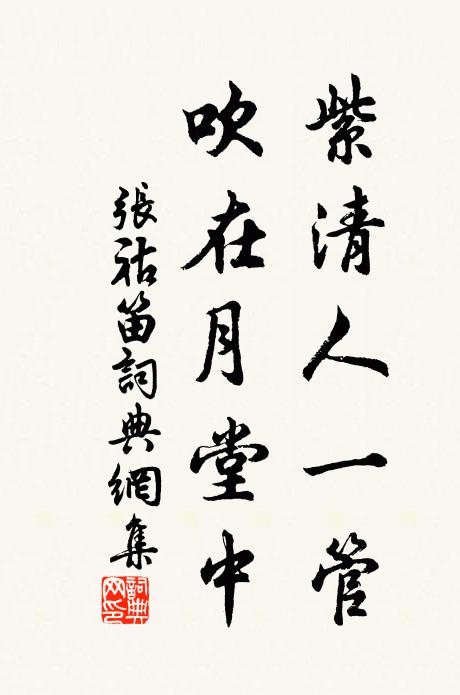 紫清人一管
吹在月堂中
張祜笛詞典網集
詞典網印